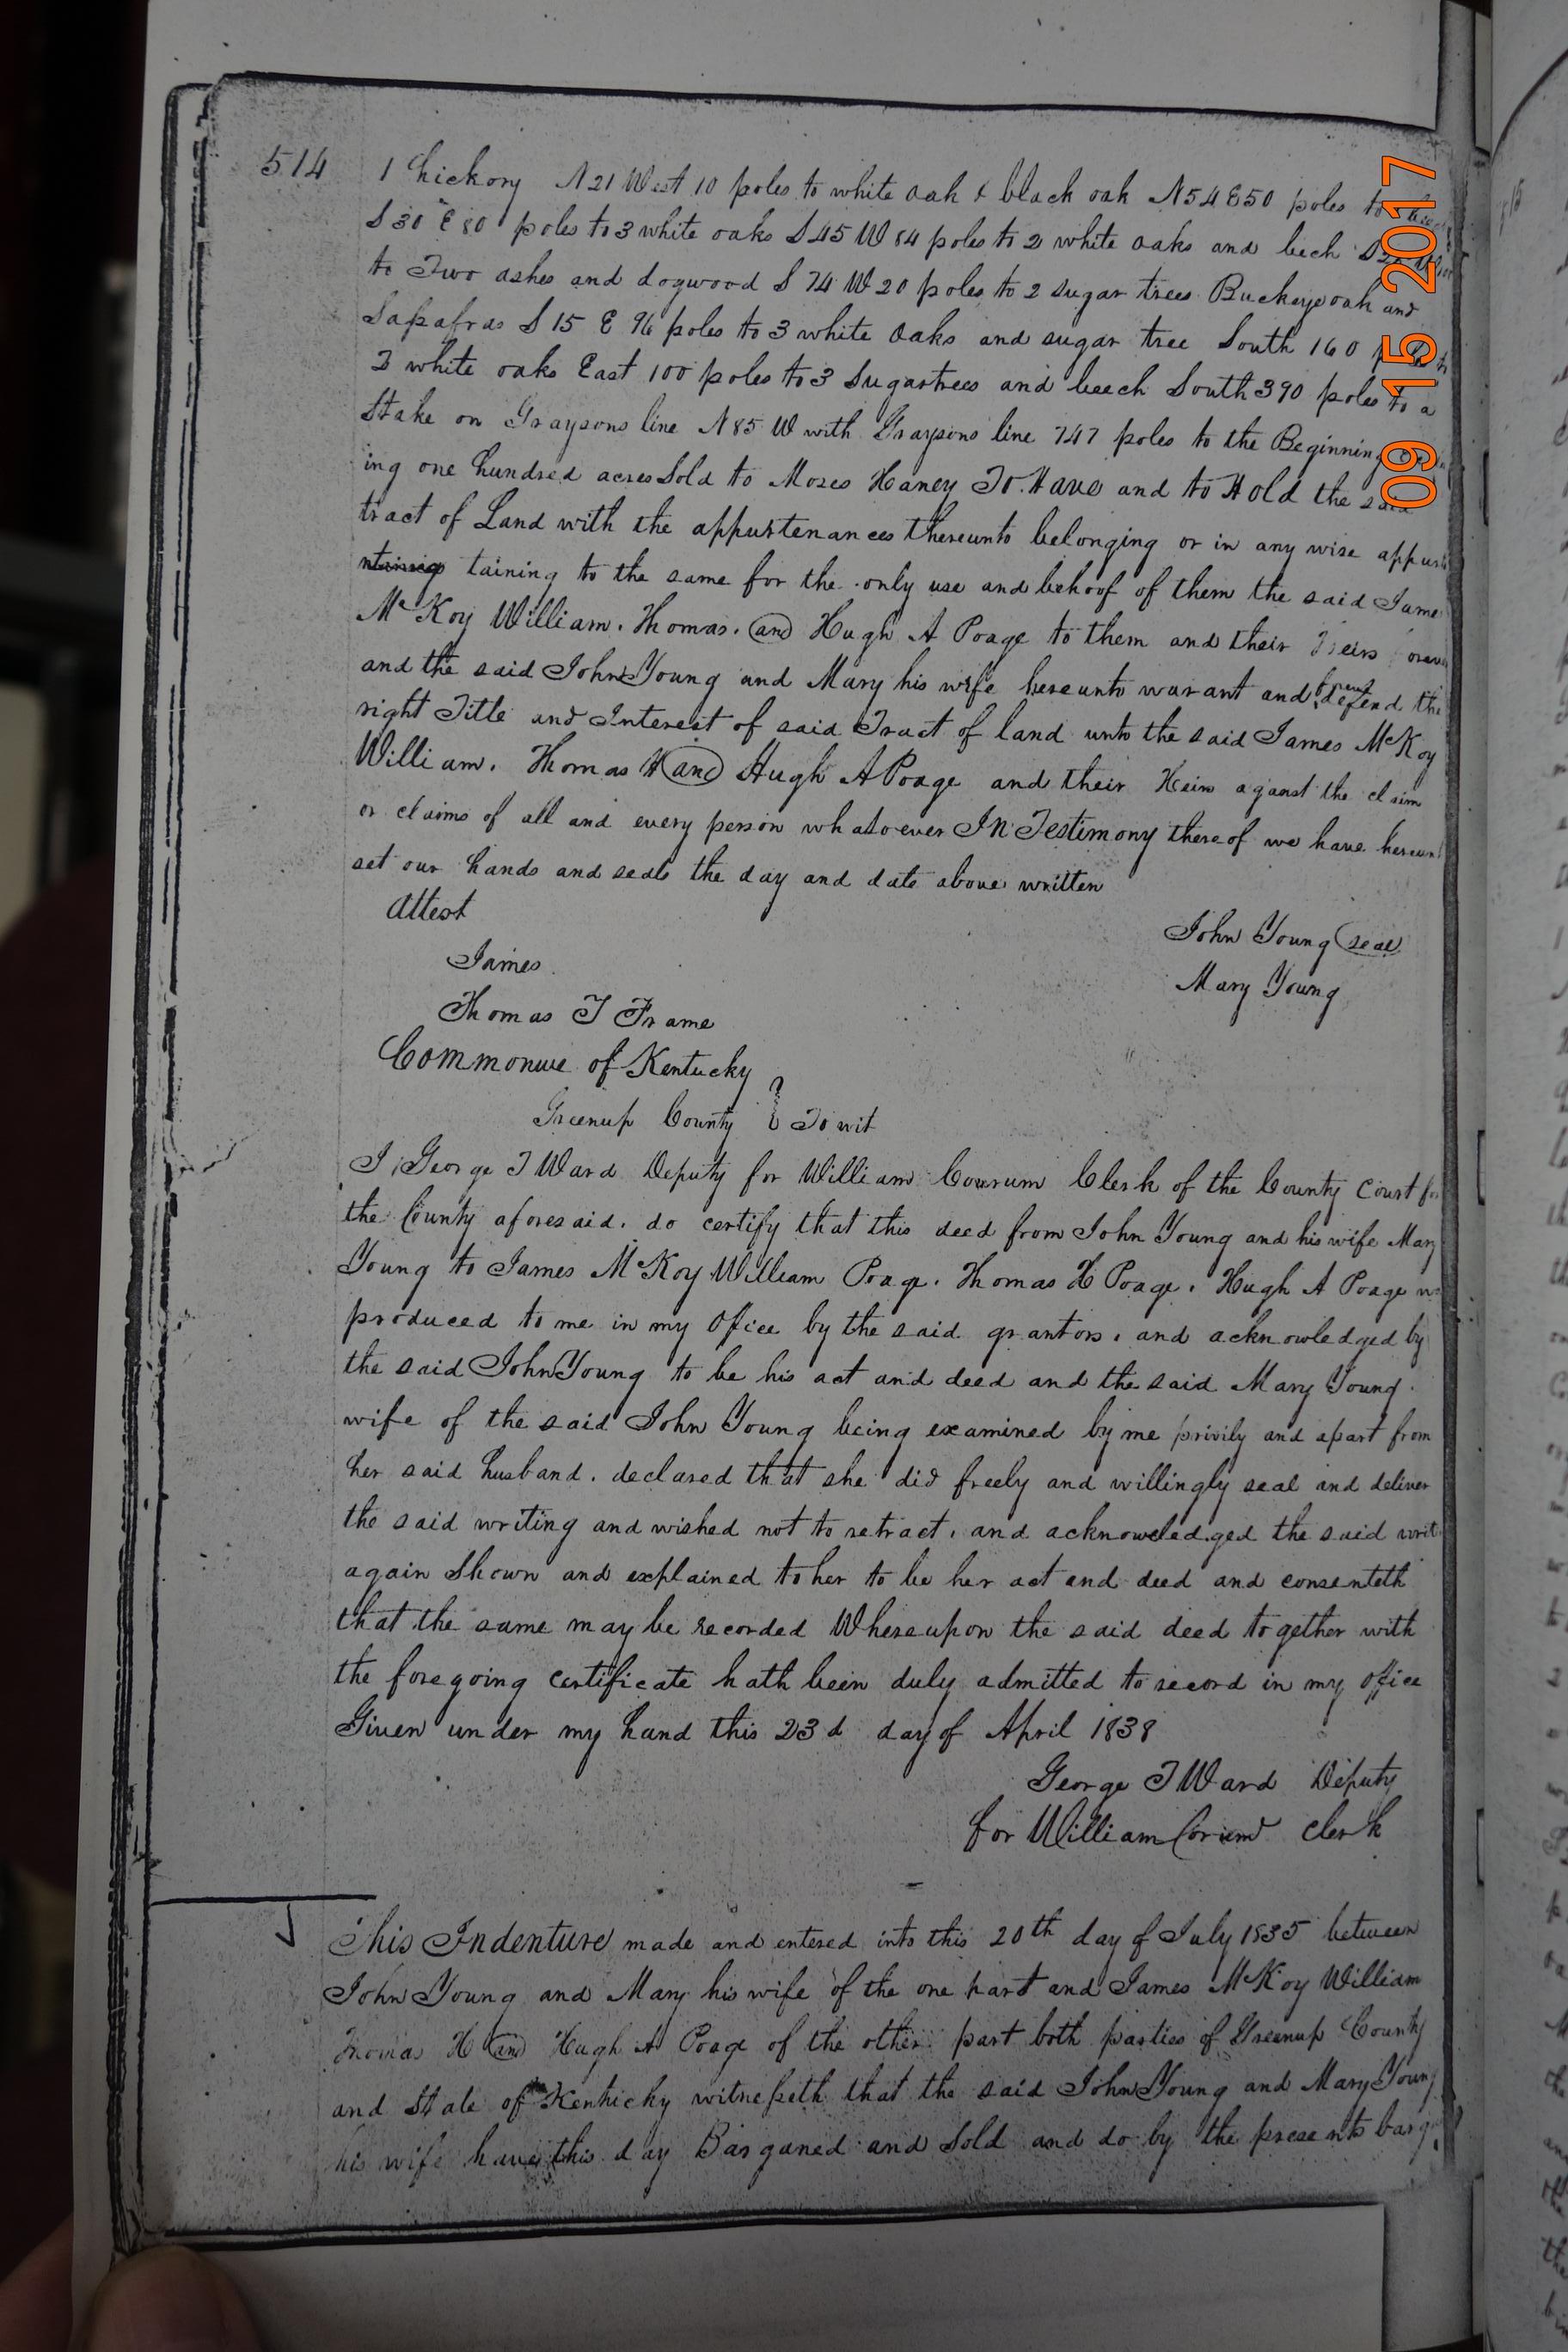 514
1 hickory N 21 West 10 poles to white oak & black oak N 54 E 50 poles to
S 30 E 80 poles to 3 white oaks S 45 W 84 poles to 2 white oaks and bech
to Two ashes and dogwood S 74 W 20 poles to 2 sugar trees Buckeye oak and
Sasafras S 15 E 96 poles to 3 white oaks and sugar tree South 160
2 white oaks East 100 poles to 3 Sugartrees and beech South 390 poles to a
Stake on Graysons line N 85 W with Graysons line 747 poles to the Beginning
ing one hundred acres Sold to Moses Haney To Have and to Hold the said
tract of Land with the appurtenances thereunto belonging or in any wise appur
taining to the same for the only use and behoof of them the said Jame
McKoy William. Thomas. and Hugh A Poage to them and their Heirs forever
and the said John Young and Mary his wife hereunto warant and defend the
right Title and Interest of said Tract of land unto the said James McKoy
William. Thomas H and Hugh A Poage and their Heirs aganst the claim
or claims of all and every person whatoever IN Testimony thereof we have hereun
set our hands and seals the day and date above written
Attest
John Young (seal)
James
Mary Young
Thomas T Frame
Commonwe of Kentucky
Greenup County } To wit
I George T Ward Deputy for William Courum Clerk of the County Court for
the County aforesaid. do certify that this deed from John Young and his wife Mary
Young to James McKoy William Poage. Thomas H Poage. Hugh A Poage
produced to me in my Office by the said grantors. and acknowledged by
the said John Young to be his act and deed and the said Mary Young
wife of the said John Young being examined by me privily and apart from
her said husband. declared that she did freely and willingly seal and deliver
the said writing and wished not to retract. and acknoweledged the said writ
again Shown and explained to her to be her act and deed and consenteth
that the same may be recorded Whereupon the said deed together with
the foregoing certificate hath been duly admitted to record in my office
Given under my hand this 23d day of April 1838
George T Ward Deputy
for William Corum Clerk
This Indenture made and entered into this 20th day of July 1835 between
John Young and Mary his wife of the one part and James McKoy William
Thomas H and Hugh A Poage of the other part both parties of Greenup County
and State of Kentucky witnesseth that the said John Young and Mary Young
his wife have this day Barganed and Sold and do by the presents barg
09 15 2017